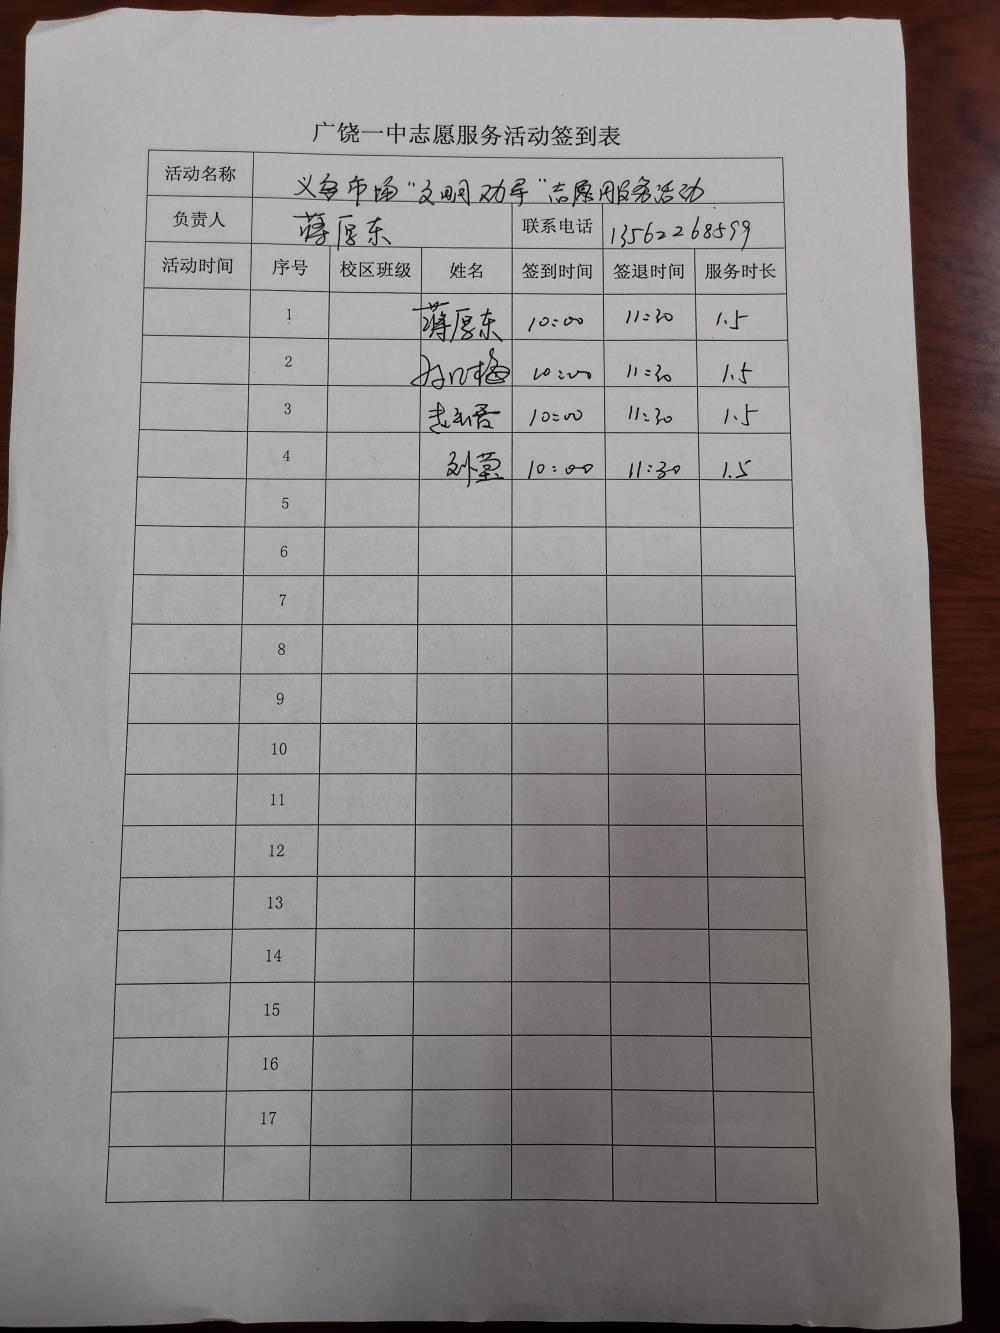 广饶一中志愿服务活动签到表
活动名称 义乌市场“文明劝导”志愿服务活动
负责人 蒋厚东 联系电话 13562268599
活动时间 序号 校区班级 姓名 签到时间 签退时间 服务时长
1 蒋厚东 10:00 11:30 1.5
2 10:00 11:30 1.5
3 10:00 11:30 1.5
4 10:00 11:30 1.5
5
6
7
8
9
10
11
12
13
14
15
16
17